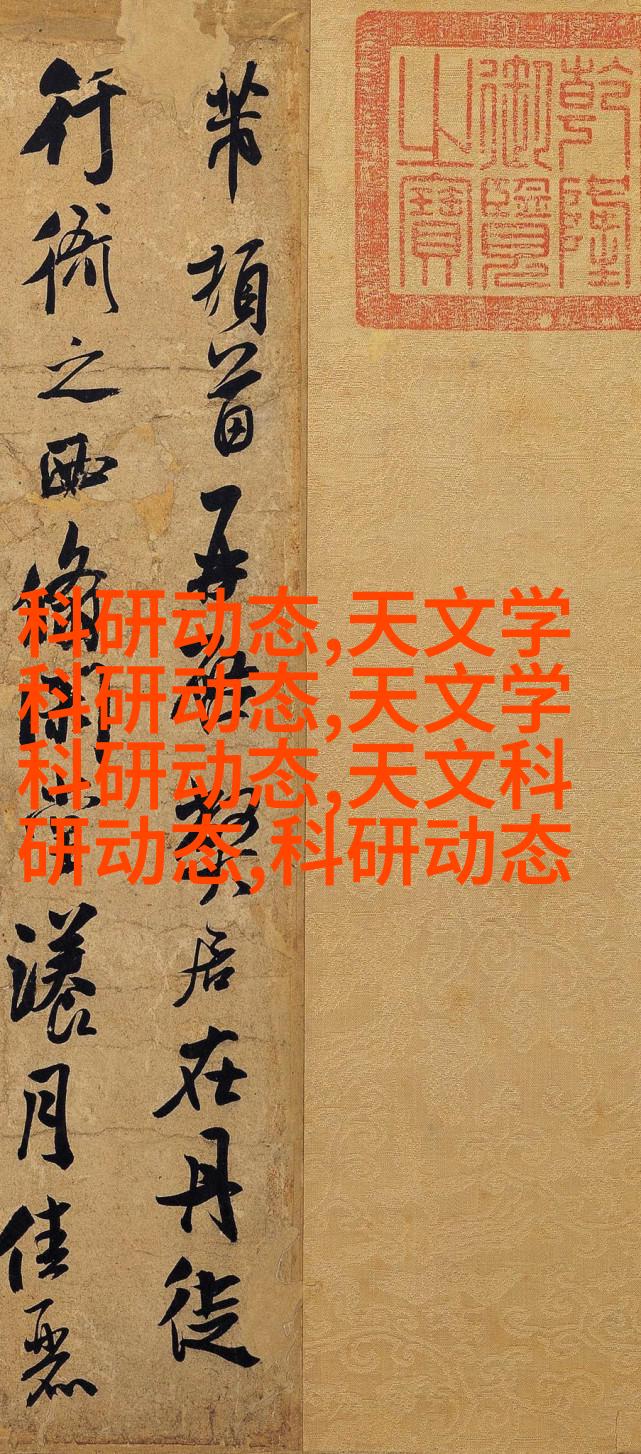 乾隆
御覽
之寶
芾頓首再啟弊居在丹徒
行衙之西翛閑堂漾月佳麗
科研动态,天文学
科研动态,天文学
科研动态,天文科
研动态,科研动态